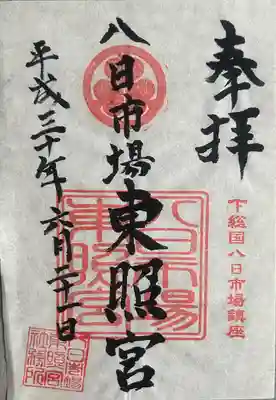 奉拝
下総国八日市場鎮座
八日市場東照宮
平成三十年六月二十一日
八日市場東照宮